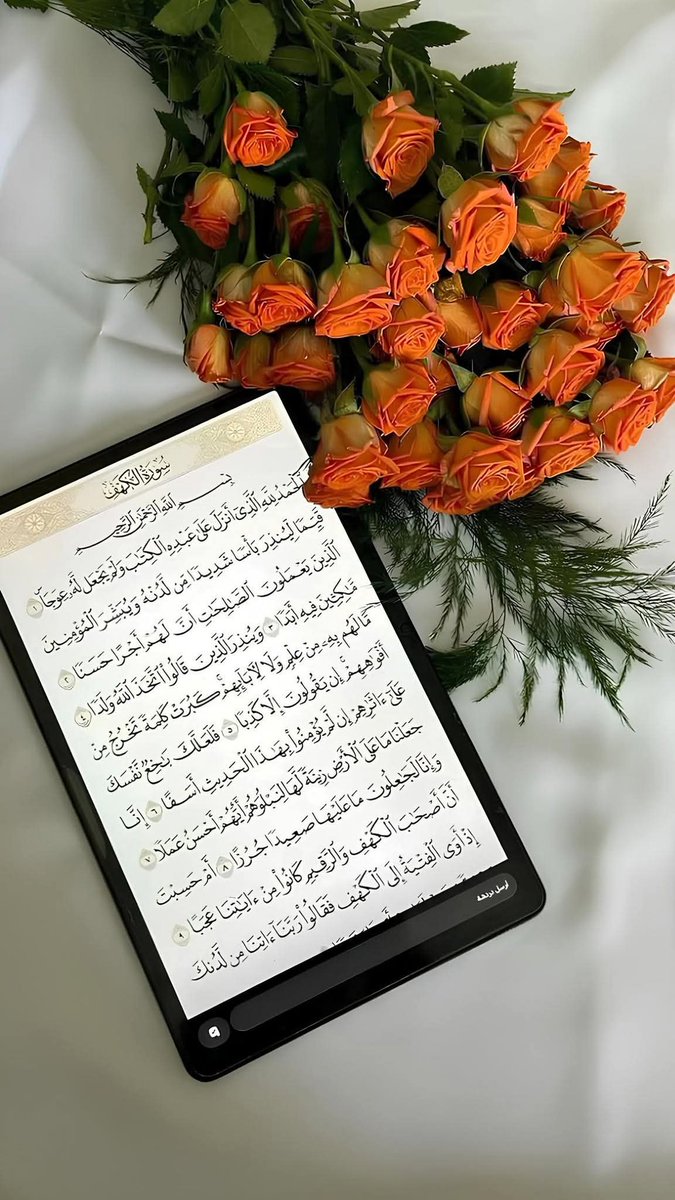 سُورَةُ الكَهْفِ
بِسْمِ اللَّهِ الرَّحْمَٰنِ الرَّحِيمِ
الْحَمْدُ لِلَّهِ الَّذِي أَنزَلَ عَلَىٰ عَبْدِهِ الْكِتَٰبَ وَلَمْ يَجْعَل لَّهُ عِوَجَا ١
قَيِّمًا لِّيُنذِرَ بَأْسًا شَدِيدًا مِّن لَّدُنْهُ وَيُبَشِّرَ الْمُؤْمِنِينَ
الَّذِينَ يَعْمَلُونَ الصَّٰلِحَٰتِ أَنَّ لَهُمْ أَجْرًا حَسَنًا ٢
مَّٰكِثِينَ فِيهِ أَبَدًا ٣ وَيُنذِرَ الَّذِينَ قَالُوا اتَّخَذَ اللَّهُ وَلَدًا ٤
مَّا لَهُم بِهِ مِنْ عِلْمٍ وَلَا لِآبَائِهِمْ كَبُرَتْ كَلِمَةً تَخْرُجُ مِنْ
أَفْوَٰهِهِمْ إِن يَقُولُونَ إِلَّا كَذِبًا ٥ فَلَعَلَّكَ بَٰخِعٌ نَّفْسَكَ
عَلَىٰ ءَاثَٰرِهِمْ إِن لَّمْ يُؤْمِنُوا بِهَٰذَا الْحَدِيثِ أَسَفًا ٦ إِنَّا
جَعَلْنَا مَا عَلَى الْأَرْضِ زِينَةً لَّهَا لِنَبْلُوَهُمْ أَيُّهُمْ أَحْسَنُ عَمَلًا ٧
وَإِنَّا لَجَٰعِلُونَ مَا عَلَيْهَا صَعِيدًا جُرُزًا ٨ أَمْ حَسِبْتَ
أَنَّ أَصْحَٰبَ الْكَهْفِ وَالرَّقِيمِ كَانُوا مِنْ ءَايَٰتِنَا عَجَبًا ٩
إِذْ أَوَى الْفِتْيَةُ إِلَى الْكَهْفِ فَقَالُوا رَبَّنَا ءَاتِنَا مِن لَّدُنكَ